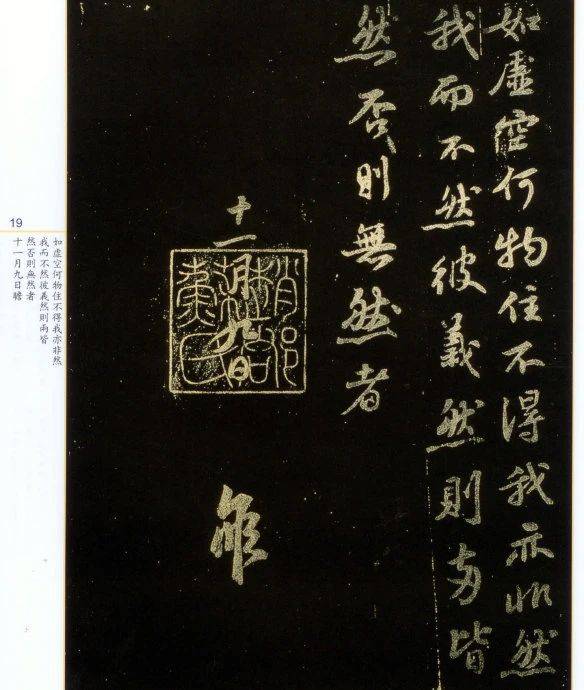 如虛空何物住不得我亦非然
我而不然彼義然則兩皆
然否則無然者
十一月九日
19
如虛空何物住不得我亦非然
我而不然彼義然則兩皆
然否則無然者
十一月九日瞻